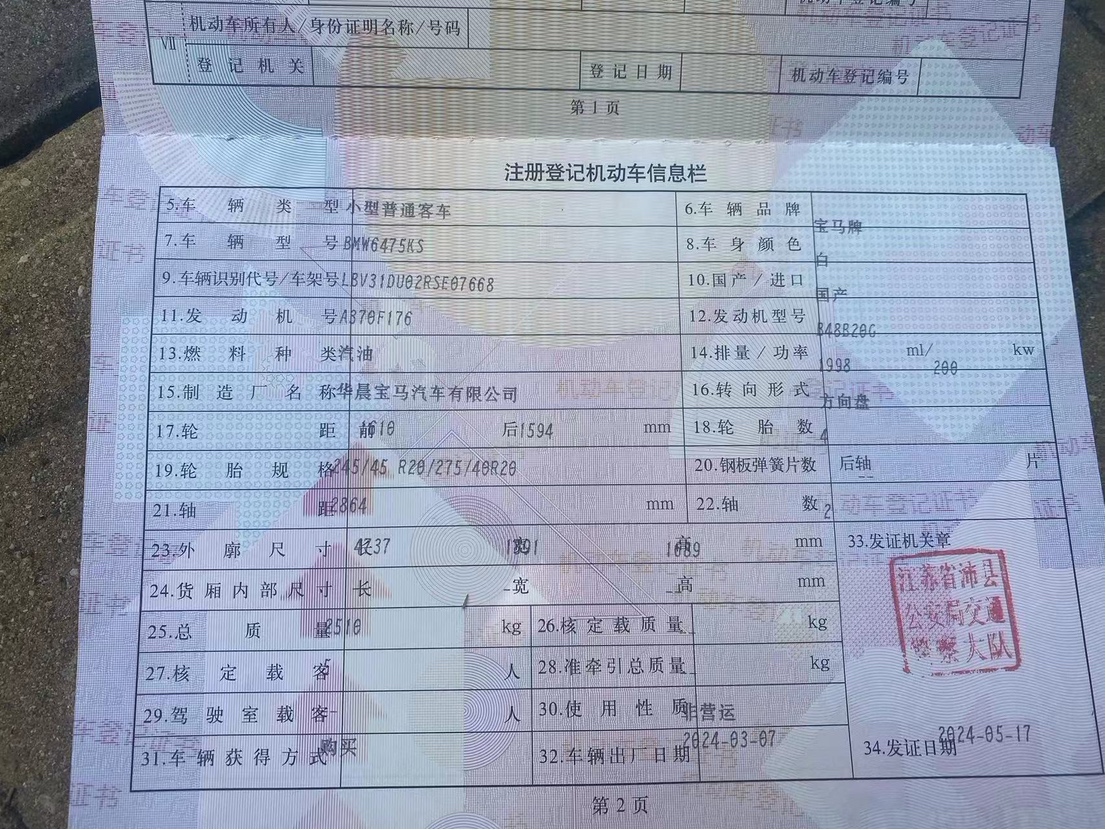 机动车登记编号
Ⅶ 机动车所有人/身份证明名称/号码
登记机关 登记日期 机动车登记编号
第1页
注册登记机动车信息栏
5.车辆类型 小型普通客车 6.车辆品牌 宝马牌
7.车辆型号 BMW6475KS 8.车身颜色 白
9.车辆识别代号/车架号 LBV31DU02RSE07668 10.国产/进口 国产
11.发动机号 A370F176 12.发动机型号 B48B20G
13.燃料种类 汽油 14.排量/功率 1998 ml/ 200 kw
15.制造厂名称 华晨宝马汽车有限公司 16.转向形式 方向盘
17.轮距 前 1610 后 1594 mm 18.轮胎数 4
19.轮胎规格 245/45 R20/275/40R20 20.钢板弹簧片数 后轴 -- 片
21.轴距 2864 mm 22.轴数 2
23.外廓尺寸 长 4737 宽 1891 高 1689 mm 33.发证机关章
24.货厢内部尺寸 长 宽 高 mm
25.总质量 2510 kg 26.核定载质量 kg
27.核定载客 5 人 28.准牵引总质量 kg
29.驾驶室载客 -- 人 30.使用性质 非营运
31.车辆获得方式 购买 32.车辆出厂日期 2024-03-07 34.发证日期 2024-05-17
江苏省沛县
公安局交通
警察大队
第2页